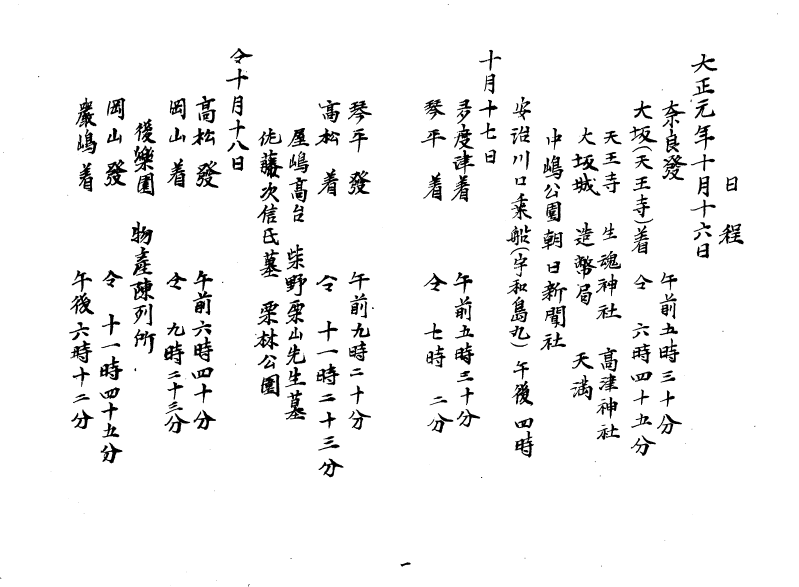 日程
大正元年十月十六日
奈良發 午前五時三十分
大坂(天王寺)着 仝 六時四十五分
天王寺 生魂神社 高津神社
大坂城 造幣局 天満
中嶋公園 朝日新聞社
安治川口乗船(宇和島丸)午後四時
十月十七日
多度津着 午前五時三十分
琴平着 仝 七時二分
琴平發 午前九時二十分
高松着 仝 十一時二十三分
屋嶋高台 柴野栗山先生墓
佐藤次信氏墓 栗林公園
仝十月十八日
高松發 午前六時四十分
岡山着 仝 九時二十三分
後樂園 物產陳列所
岡山發 仝 十一時四十五分
嚴嶋着 午後六時十二分
一